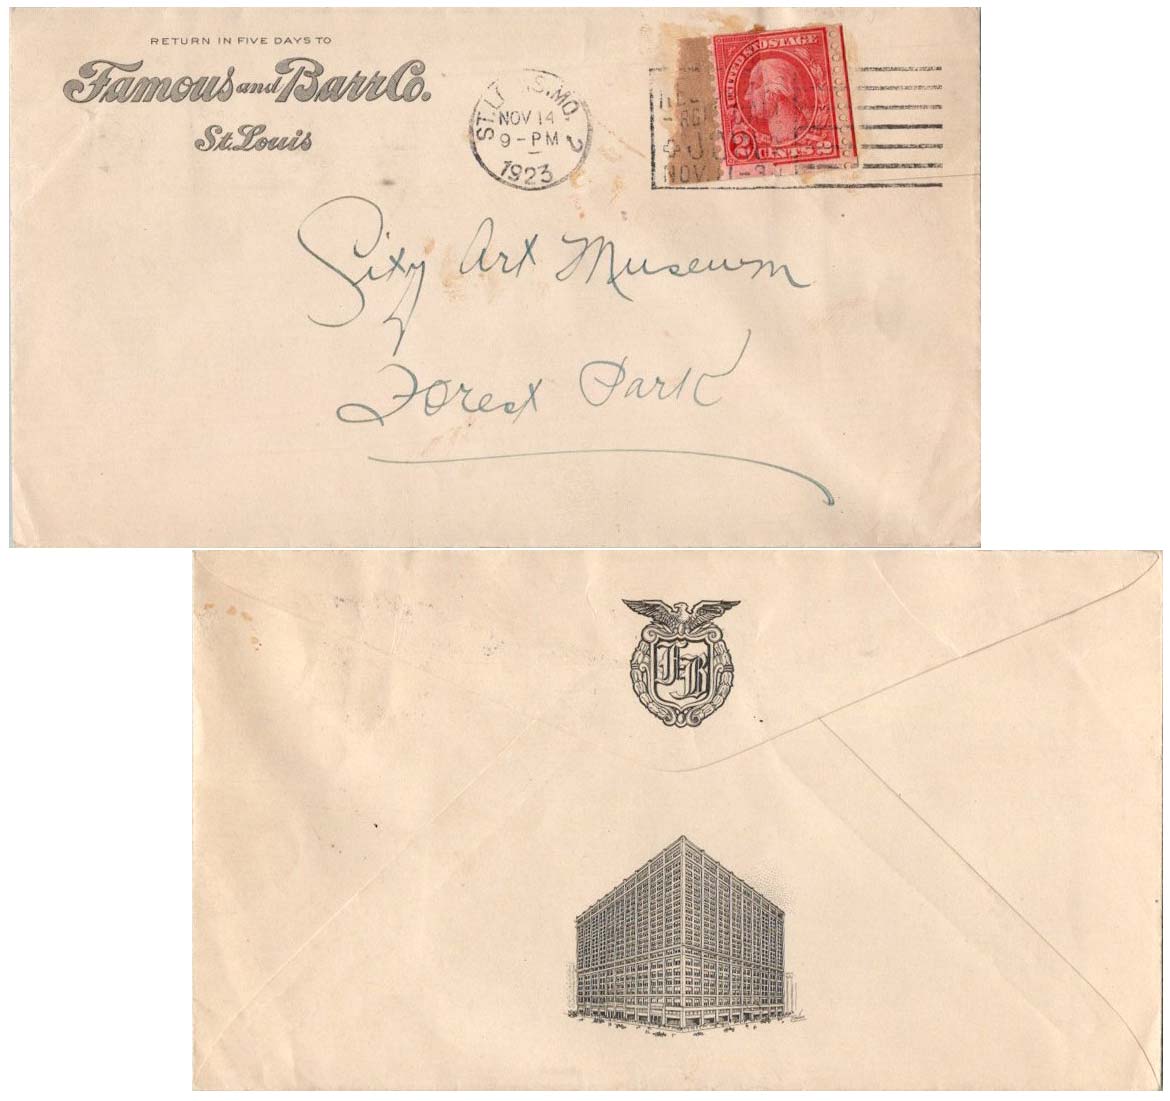 RETURN IN FIVE DAYS TO
Famous and Barr Co.
St. Louis
ST. LOUIS, MO. 2
NOV 14
9-PM
1923
UNITED STATES POSTAGE
2 CENTS 2
NOV. 11-
City Art Museum
Forest Park
FB